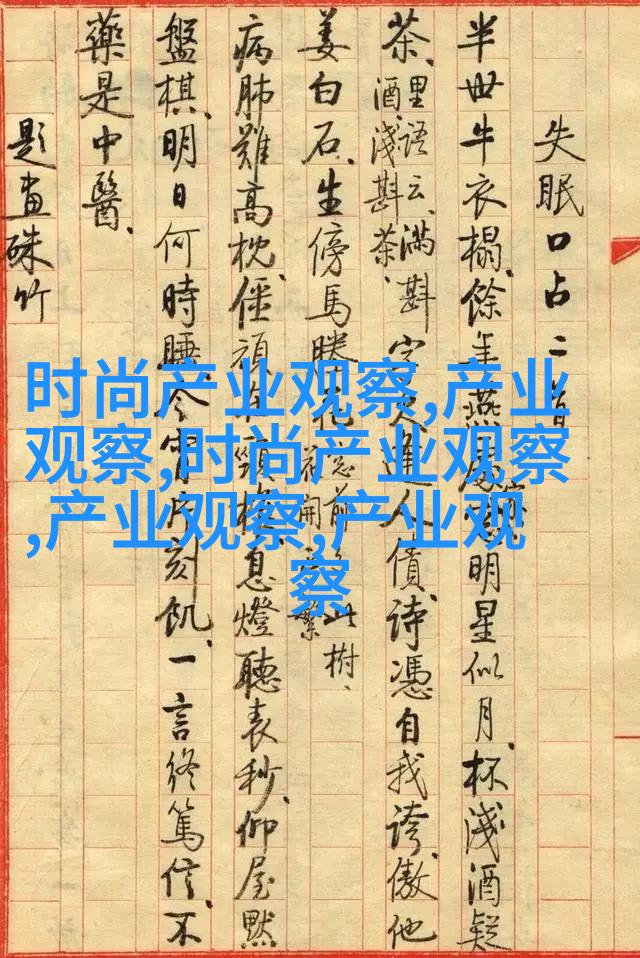 失眠口占二首
半世牛衣榻、餘年燕明星似月、杯淺酒疑
茶、里語云、滿斟酒、淺斟茶、字人債、詩憑自我誇、傲他
姜白石、生傍馬塍花此樹、
病肺難高枕、僵頑在頸椎、息燈聽表秒、仰屋默
盤棋、明日何時睡、今宵片刻飢、一言終篤信、不
藥是中醫、
題畫硃竹
时尚产业观察,产业
观察,时尚产业观察
,产业观察,产业观
察